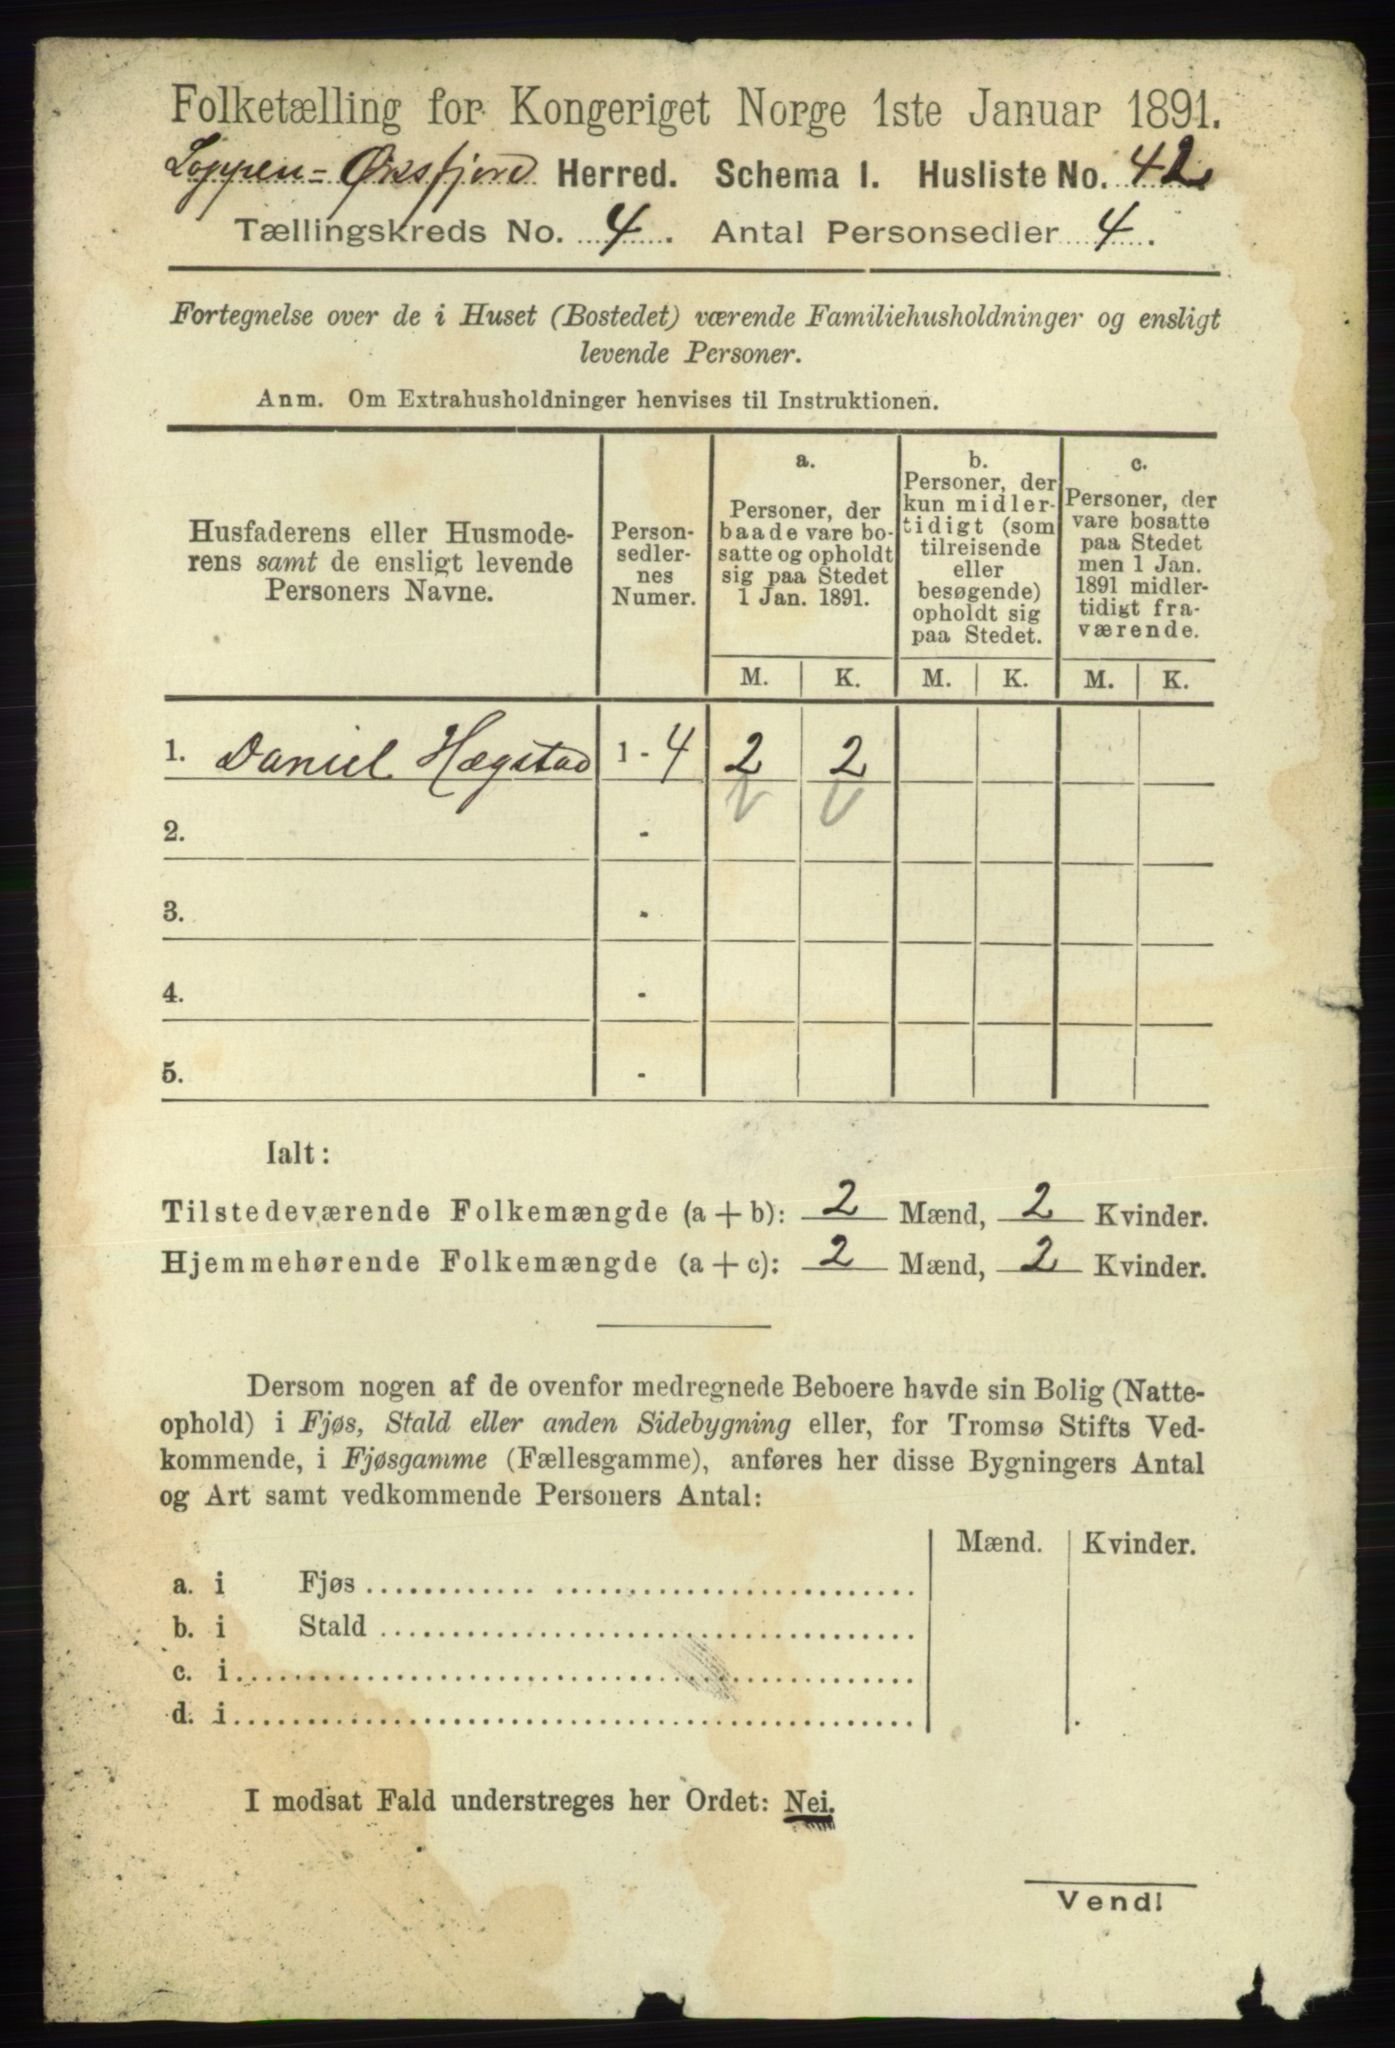 Folketælling for Kongeriget Norge 1ste Januar 1891.
Loppen-Øksfjord Herred. Schema I. Husliste No. 42
Tællingskreds No. 4. Antal Personsedler 4.
Fortegnelse over de i Huset (Bostedet) værende Familiehusholdninger og ensligt
levende Personer.
Anm. Om Extrahusholdninger henvises til Instruktionen.
Husfaderens eller Husmode-
rens samt de ensligt levende
Personers Navne.
Person-
sedler-
nes
Numer.
a.
Personer, der
baade vare bo-
satte og opholdt
sig paa Stedet
1 Jan. 1891.
b.
Personer, der
kun midler-
tidigt (som
tilreisende
eller
besøgende)
opholdt sig
paa Stedet.
c.
Personer, der
vare bosatte
paa Stedet
men 1 Jan.
1891 midler-
tidigt fra-
værende.
M. K. M. K. M. K.
1. Daniel Hægstad 1 - 4 2 2
2. -
3. -
4. -
5. -
Ialt:
Tilstedeværende Folkemængde (a + b): 2 Mænd, 2 Kvinder.
Hjemmehørende Folkemængde (a + c): 2 Mænd, 2 Kvinder.
Dersom nogen af de ovenfor medregnede Beboere havde sin Bolig (Natte-
ophold) i Fjøs, Stald eller anden Sidebygning eller, for Tromsø Stifts Ved-
kommende, i Fjøsgamme (Fællesgamme), anføres her disse Bygningers Antal
og Art samt vedkommende Personers Antal:
Mænd. Kvinder.
a. i Fjøs
b. i Stald
c. i
d. i
I modsat Fald understreges her Ordet: Nei.
Vend!